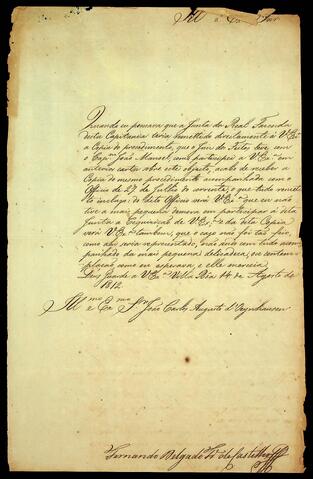 Ill e Ex Snr
Quando eu pensava que a Junta da Real Fazenda
desta Capitania teria remettido directamente a V Exª
a Copia do procedimento, que o Juiz dos Feitos teve com
o Capm João Manoel, como participei a V Exª em
anterior carta sobre este objecto, acabo de receber a
Copia do mesmo procedimento acompanhada com o
Officio de 27 de Julho do corrente; o que tudo remetto
incluso, de cujo Officio verá V Exª que eu não
tive a mais pequena demora em participar á dita
Junta a Requisição de V Exª e da dita Copia
verá V Exª tambem, que o cazo não foi tão feio,
como ahi seria representado, mas não com tudo acom-
panhado da mais pequena delicadeza, ou contem-
plação como eu esperava, e elle merecia
Deos Guarde a V Exª Villa Boa 14 de Agosto de
1812.
Illmo e Exmo Snr João Carlos Augusto d'Oeynhausen
Fernando Delgado Fre de Castilho